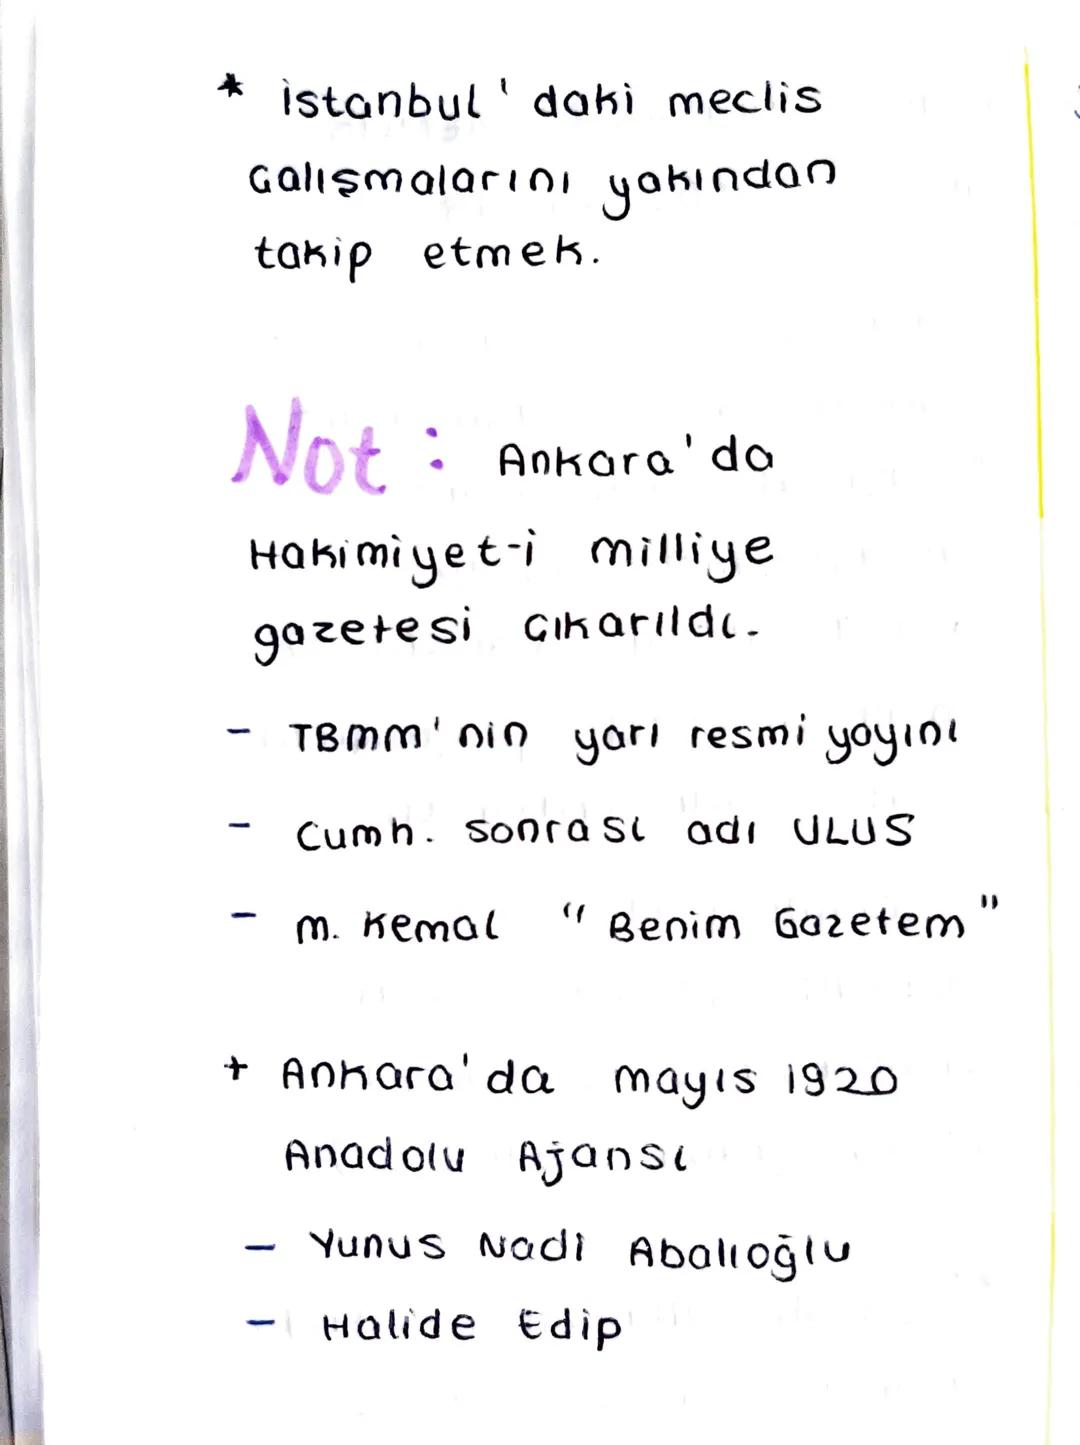 * İstanbul'daki meclis
Çalışmalarını yakından
takip etmek.
Not : Ankara'da
Hakimiyet-i milliye
gazetesi Çıkarıldı.
- TBMM'nin yarı resmi yayını
- Cumh. sonrası adı ULUS
- M. Kemal "Benim Gazetem"
+ Ankara'da mayıs 1920
Anadolu Ajansı
- Yunus Nadi Abalıoğlu
- Halide Edip